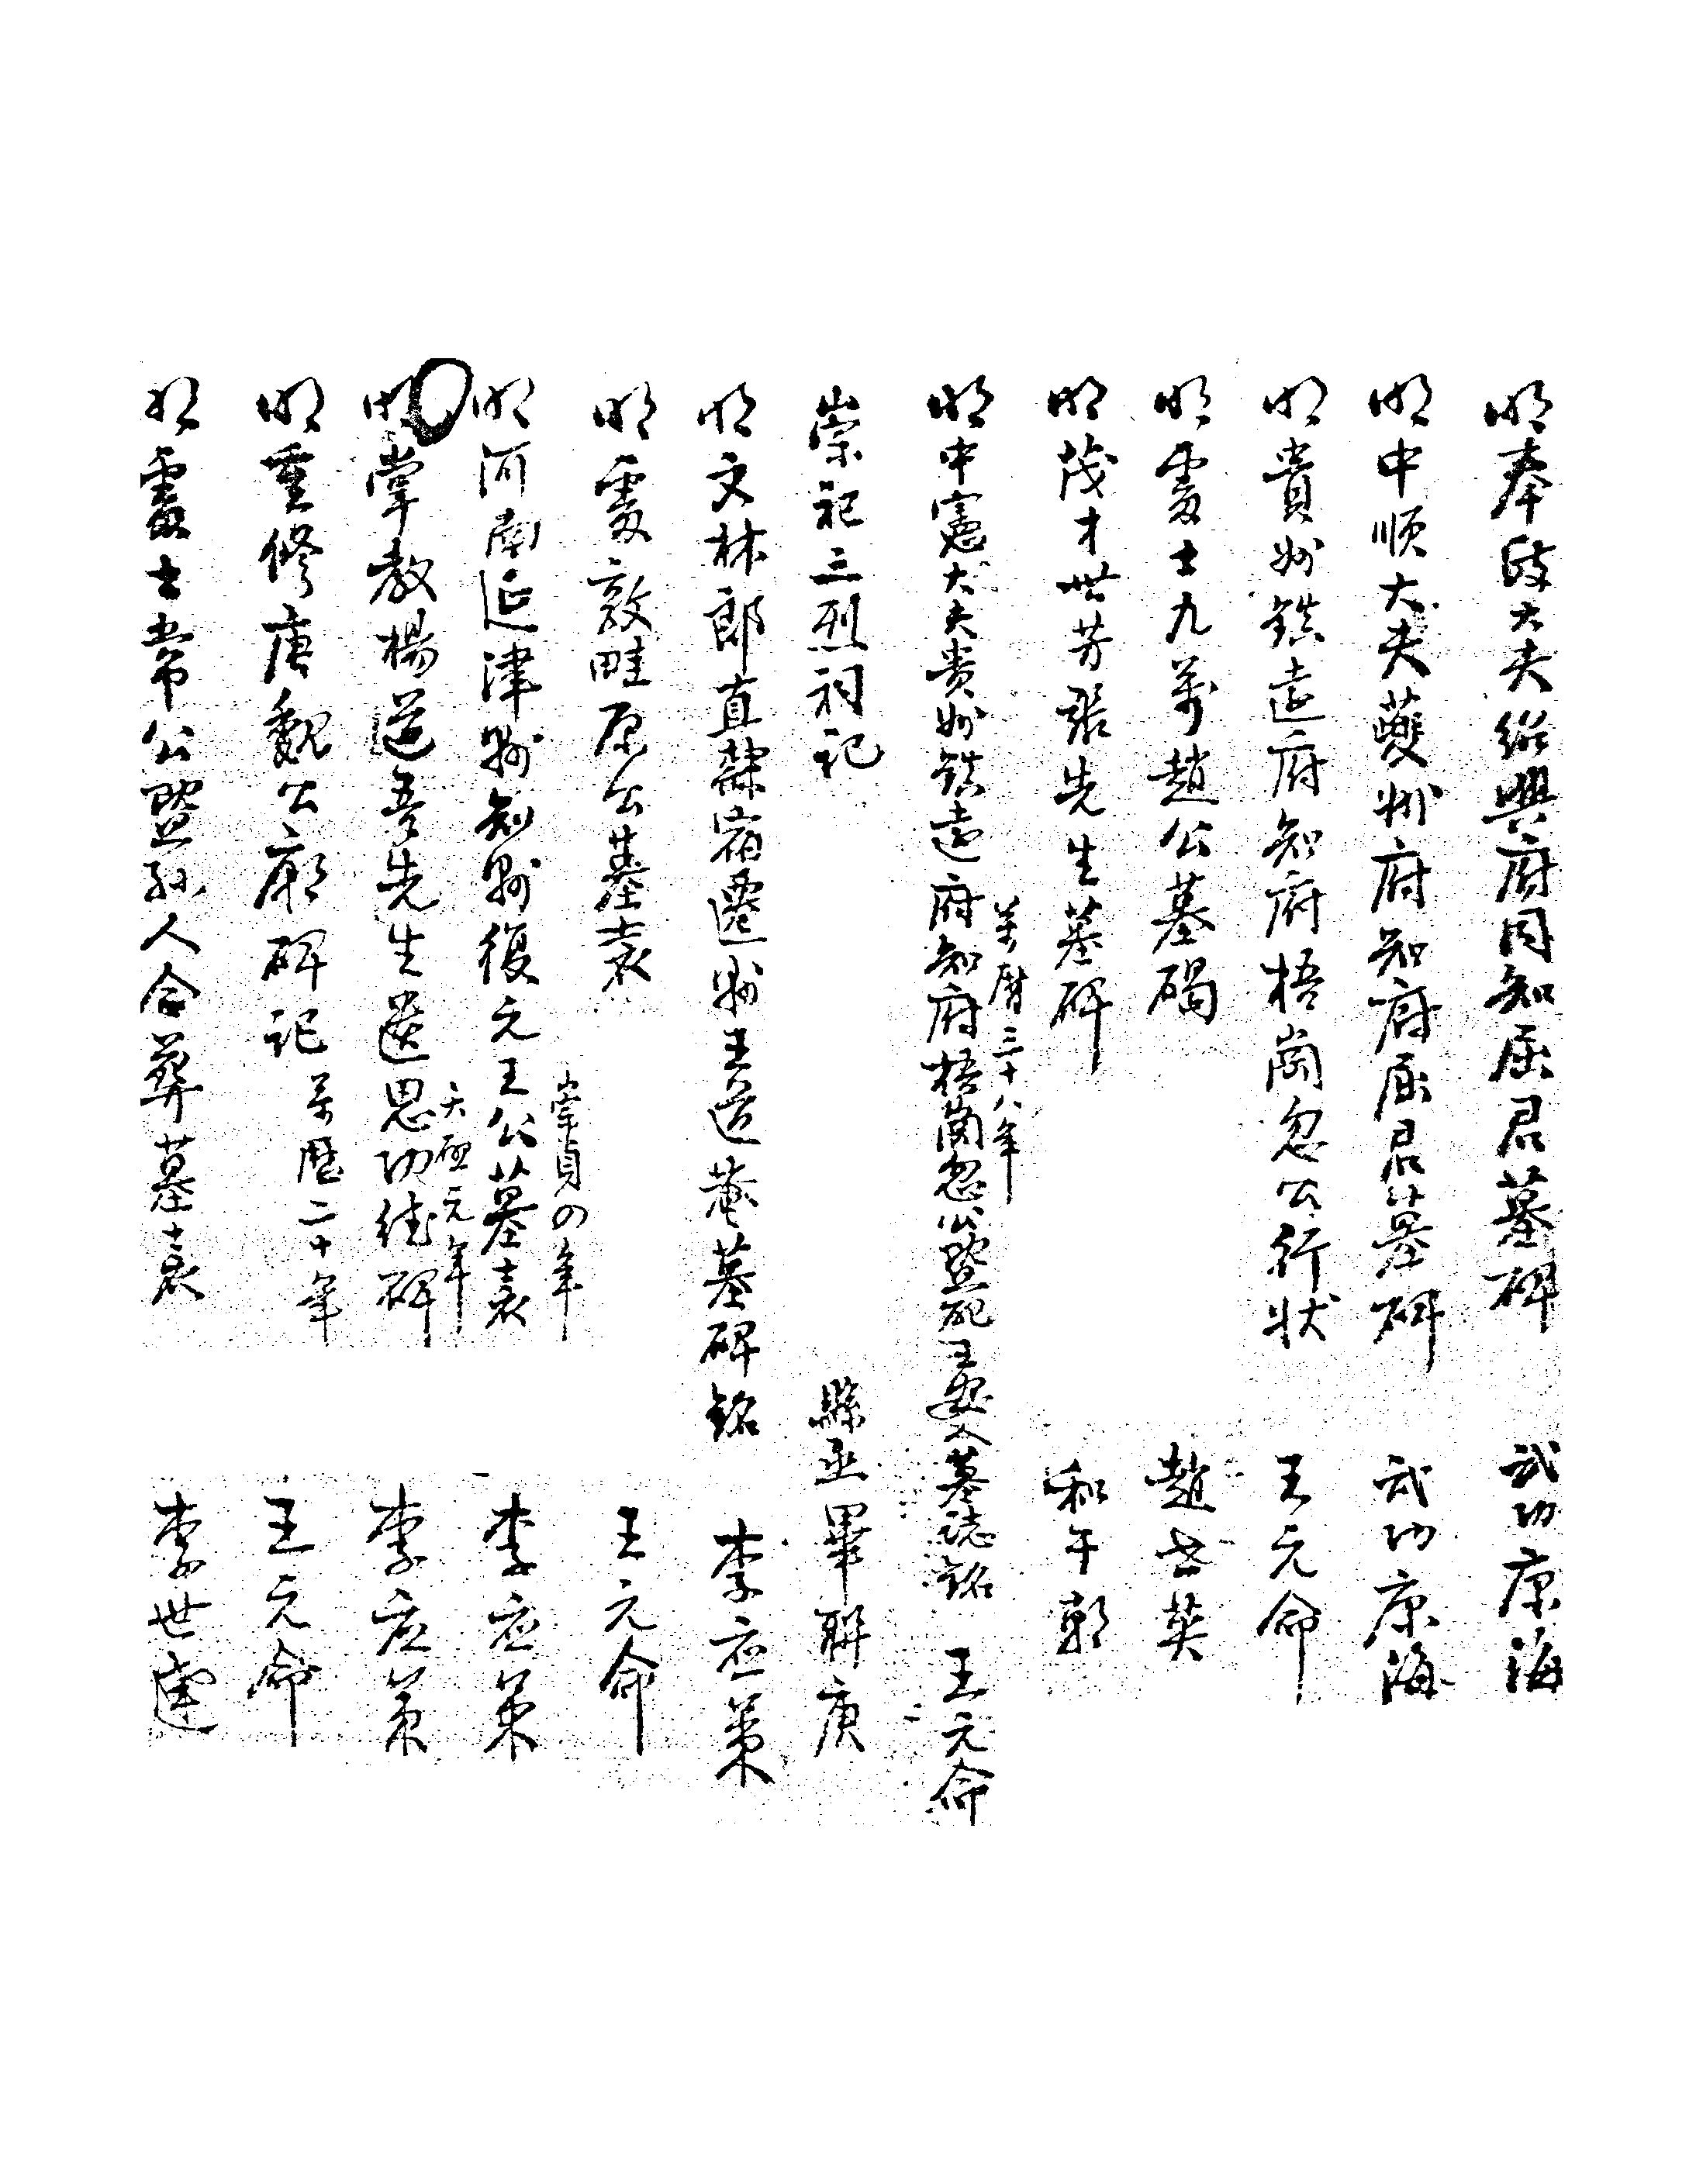 明奉政大夫绍興府同知屈君墓碑 武功康海
明中順大夫夔州府知府屈君墓碑 武功康海
明貴州鎮遠府知府梧崗忽公行状 王元命
明處士九萬趙公墓碣 趙世英
明茂才世芳張先生墓碑 和千朝
明中憲大夫贵州鎮遠府知府梧崗忽公暨配王安人墓誌銘 王元命
萬曆三十八年
崇祀三烈祠記 縣丞畢聯庚
明文林郎直隸宿遷縣王道菴墓碑銘 李应策
明處敦畦原公墓表 王元命
崇貞四年
明河南延津縣知縣復元王公墓表 李应策
天啟元年
明掌教楊道吾先生遺思功德碑 李应策
明重修唐魏公廟碑記 王元命
萬歷二十年
明處士常公暨孫人合葬墓表 李世達